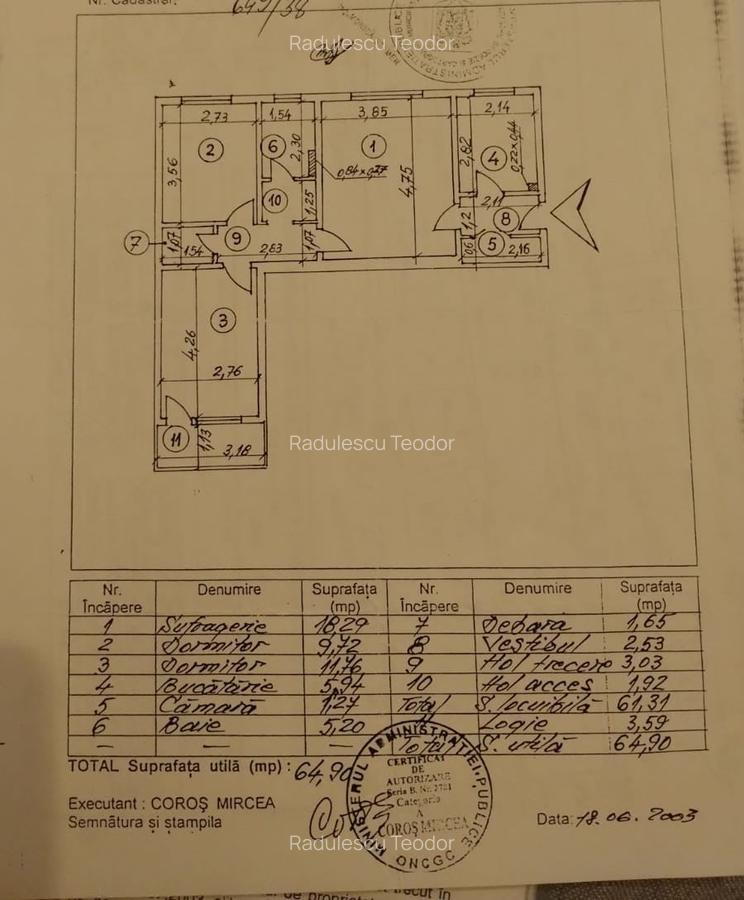 Nr. Cadastral:
649/38
Radulescu Teodor
2,73
1,54
3,85
2,14
3,56
2
6
2,30
1
2,82
4
0,22x0,44
0,84x0,27
4,75
10
1,25
2,11
8
7
1,07
9
1,2
5
1,54
2,83
1,07
2,16
3
4,26
2,76
11
1,13
3,18
Radulescu Teodor
Nr. Încăpere Denumire Suprafața (mp) Nr. Încăpere Denumire Suprafața (mp)
1 Sufragerie 18,29 7 Debara 1,65
2 Dormitor 9,72 8 Vestibul 2,53
3 Dormitor 11,76 9 Hol trecere 3,03
4 Bucătărie 5,94 10 Hol acces 1,92
5 Cămară 1,27 Total S. locuibilă 61,31
6 Baie 5,20 Logie 3,59
— — — Total S. utilă 64,90
TOTAL Suprafața utilă (mp) : 64,90
Executant : COROȘ MIRCEA
Semnătura și ștampila
MINISTERUL ADMINISTRAȚIEI PUBLICE
CERTIFICAT
DE
AUTORIZARE
Seria B. Nr.
Categoria
A
COROȘ MIRCEA
ONCGC
Data: 18.06.2003
Radulescu Teodor